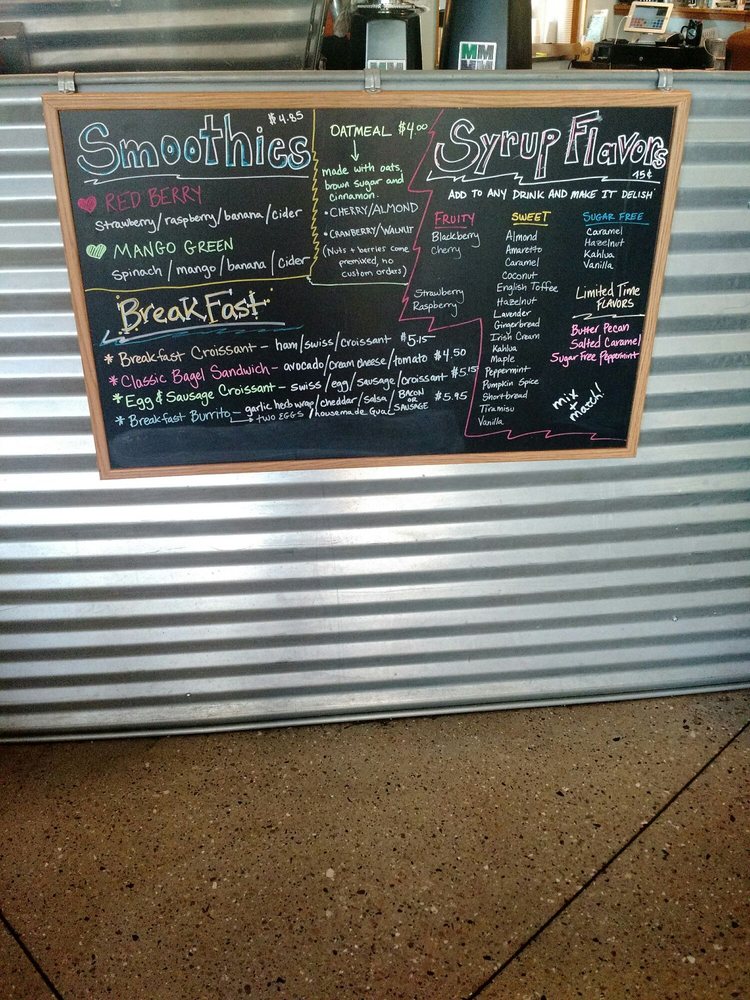 MM
MM
$4.85
Smoothies
RED BERRY
Strawberry/raspberry/banana/cider
MANGO GREEN
Spinach/mango/banana/cider
OATMEAL $4.00
made with oats,
brown sugar and
cinnamon.
• CHERRY/ALMOND
• CRANBERRY/WALNUT
(Nuts + berries come
premixed, no
custom orders)
BreakFast
* Breakfast Croissant - ham/swiss/croissant $5.15
* Classic Bagel Sandwich - avocado/cream cheese/tomato $4.50
* Egg & Sausage Croissant - swiss/egg/sausage/croissant $5.15
* Breakfast Burrito - garlic herb wrap/cheddar/salsa/BACON OR SAUSAGE $5.95
TWO EGGS/housemade Guac/
Syrup Flavors
75¢
ADD TO ANY DRINK AND MAKE IT DELISH
FRUITY
Blackberry
Cherry
Strawberry
Raspberry
SWEET
Almond
Amaretto
Caramel
Coconut
English Toffee
Hazelnut
Lavender
Gingerbread
Irish Cream
Kahlua
Maple
Peppermint
Pumpkin Spice
Shortbread
Tiramisu
Vanilla
SUGAR FREE
Caramel
Hazelnut
Kahlua
Vanilla
Limited Time
FLAVORS
Butter Pecan
Salted Caramel
Sugar Free Peppermint
mix
+
match!